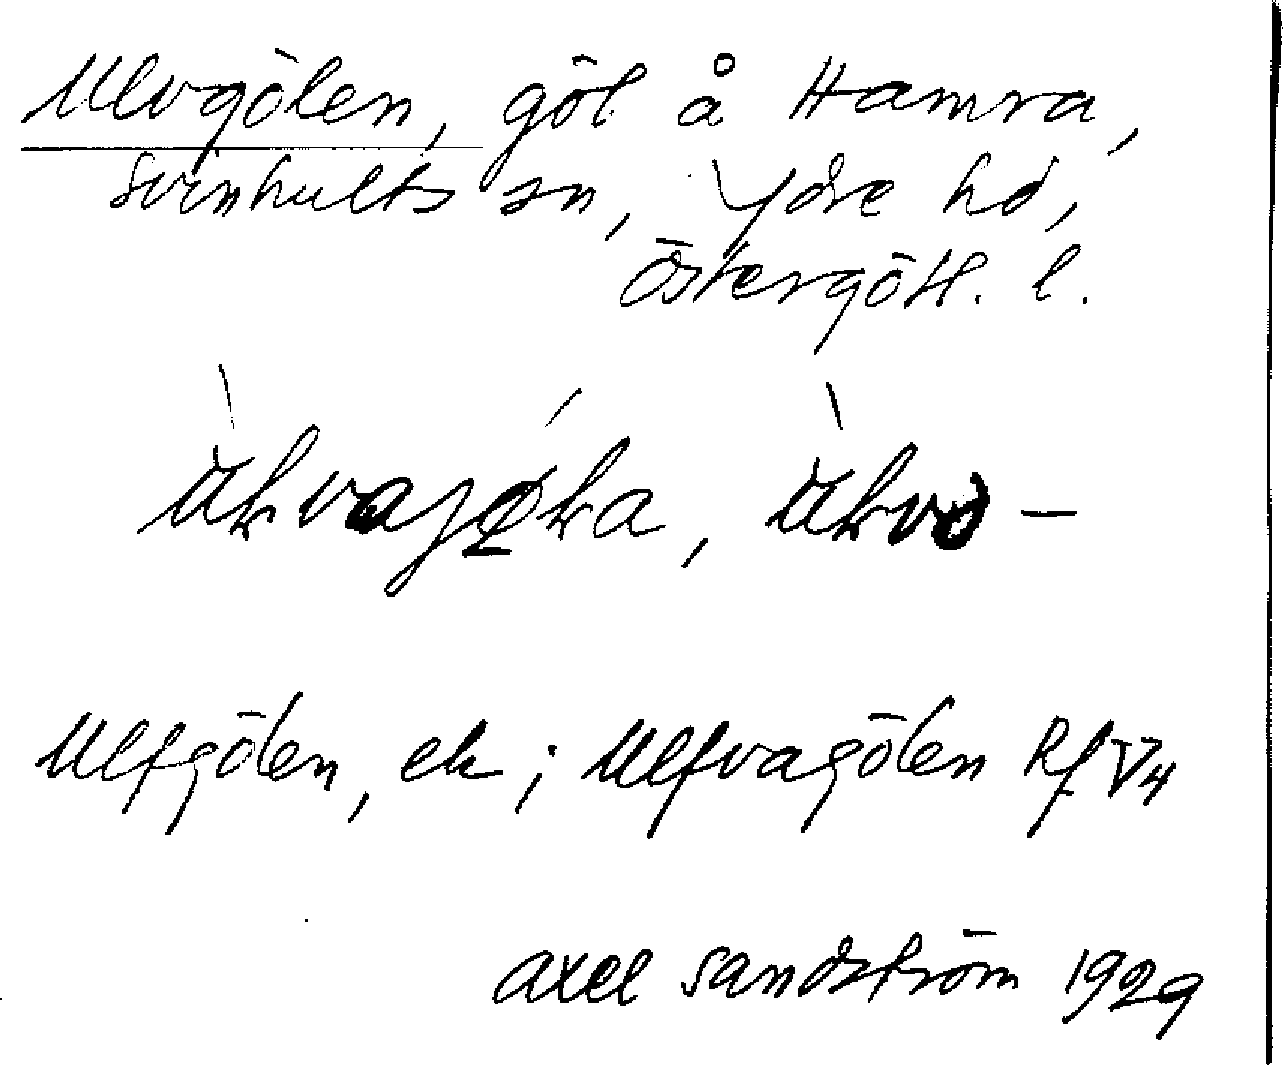 Ulvgölen, göl å Hamra,
Svinhults sn, Ydre hd,
Östergötl. l.
Ulfgölen, ek; Ulfvagölen Rf
Axel Sandström 1929